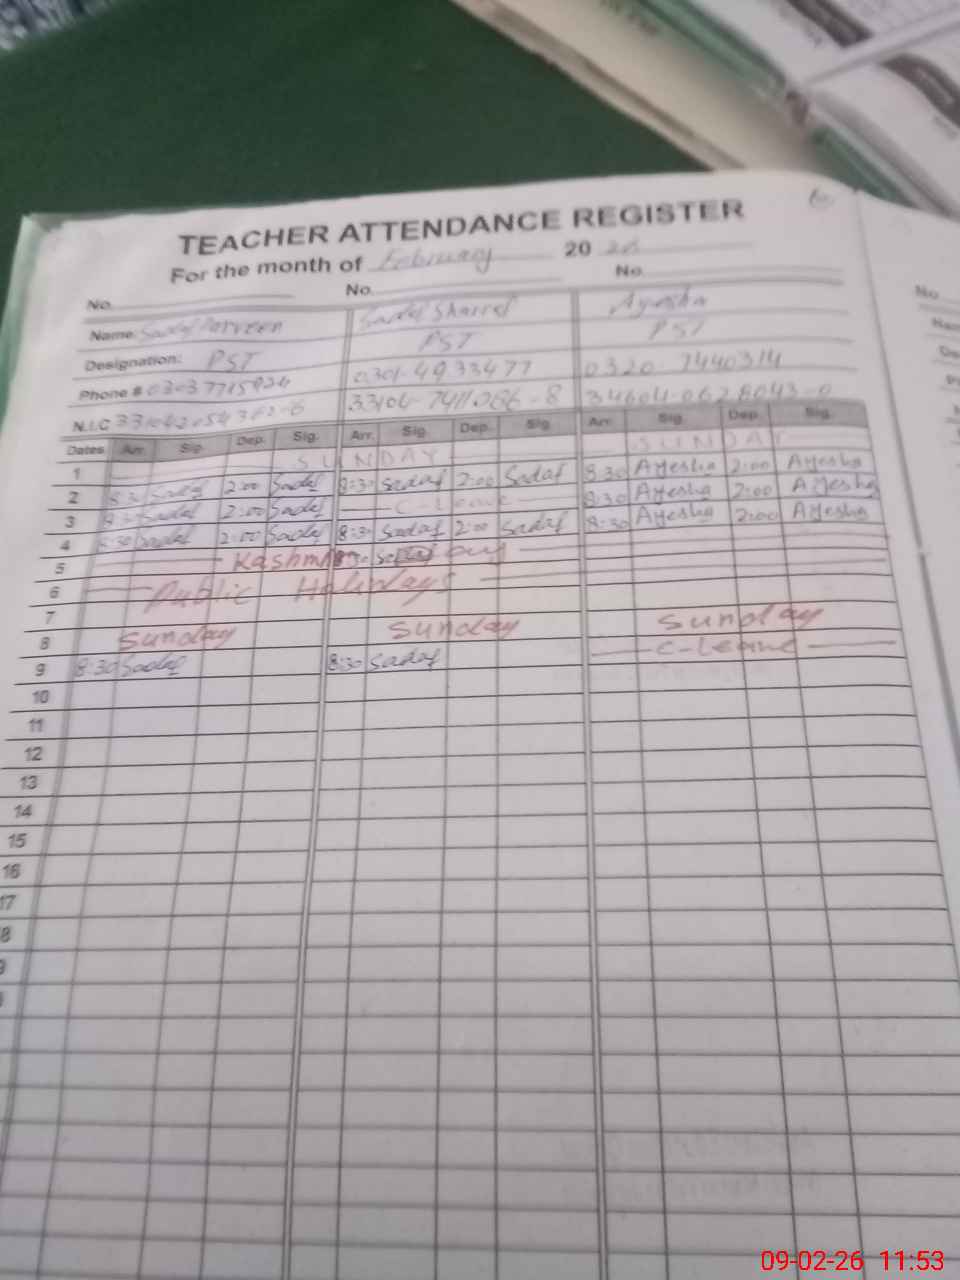 TEACHER ATTENDANCE REGISTER
For the month of February 20 26
No. No. No.
Name: Sadaf Parveen Sadaf Sharref Ayesha
Designation: PST PST PST
Phone # 03037715936 0301-4933477 0320-7440314
N.I.C 33104-7411086-8 34604-0628043-0
Dates Arr. Sig. Dep. Sig. Arr. Sig. Dep. Sig. Arr. Sig. Dep. Sig.
1 SUNDAY SUNDAY
2 8:30 Sadaf 2:00 Sadaf 8:30 Sadaf 2:00 Sadaf 8:30 Ayesha 2:00 Ayesha
3 8:30 Sadaf 2:00 Sadaf C-Leave 8:30 Ayesha 2:00 Ayesha
4 8:30 Sadaf 2:00 Sadaf 8:30 Sadaf 2:00 Sadaf 8:30 Ayesha 2:00 Ayesha
5 Kashmir Day
6 Public Holidays
7
8 Sunday Sunday Sunday
9 8:30 Sadaf 8:30 Sadaf C-Leave
10
11
12
13
14
15
16
17
8
09-02-26 11:53